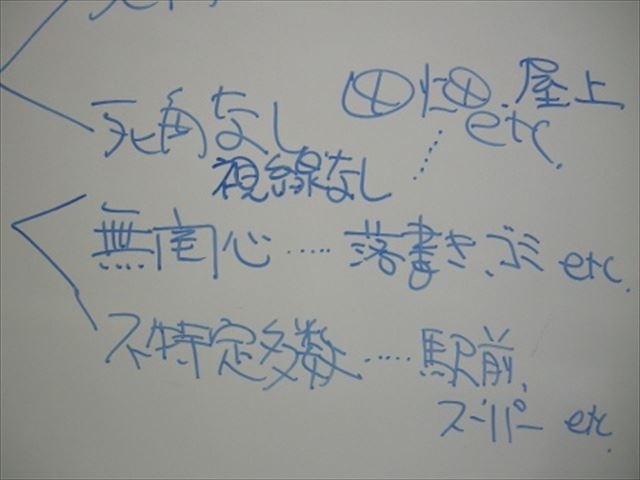 死角なし 田 畑、屋上
etc.
視線なし ……
無関心 …… 落書き、ゴミ etc.
不特定多数 …… 駅前、
スーパー etc.